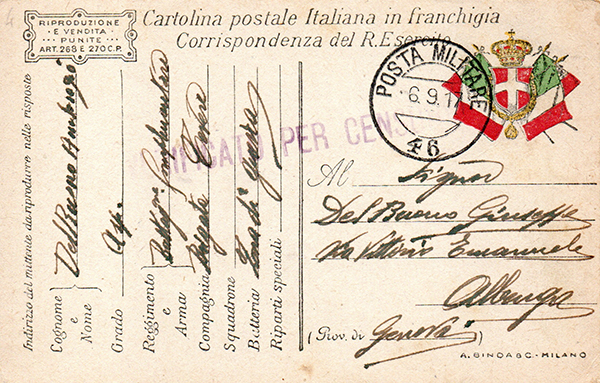 4
RIPRODUZIONE
E VENDITA
PUNITE
ART. 268 E 270 C.P.
Cartolina postale Italiana in franchigia
Corrispondenza del R. Esercito
POSTA MILITARE
6.9.17
46
VERIFICATO PER CENS
Al Signor
Del Buono Giuseppe
Via Vittorio Emanuele
Albenga
(Prov. di Genova)
A. GINO & C. - MILANO
Indirizzo del mittente da riprodurre nella risposta
Cognome e Nome Del Buono Ambrogio
Grado Asp.
Reggimento e Arma Battagne
Compagnia Brigata
Squadrone
Batteria Zona di guerra
Riparti speciali